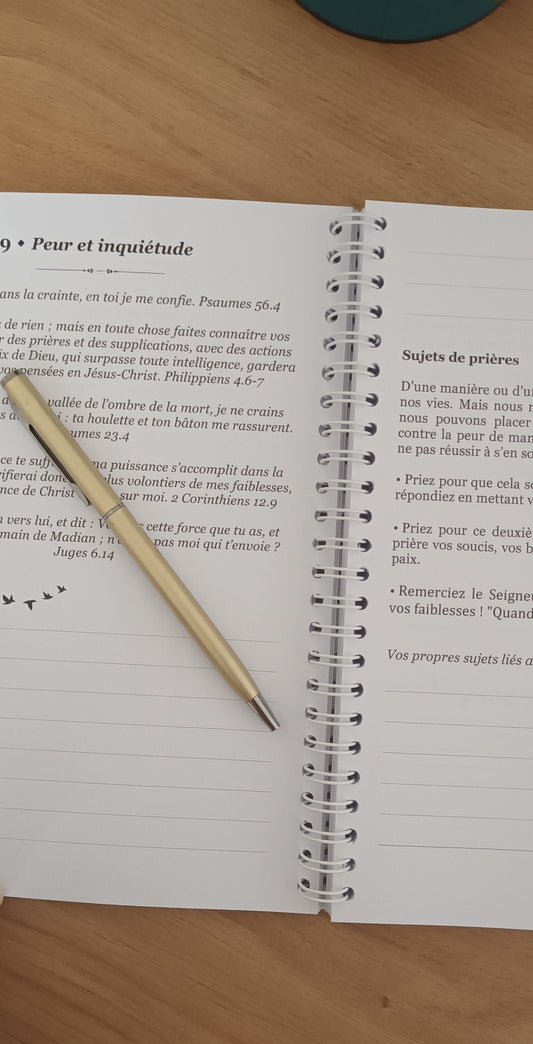 9 ♦ Peur et inquiétude
ans la crainte, en toi je me confie. Psaumes 56.4
de rien ; mais en toute chose faites connaître vos
r des prières et des supplications, avec des actions
ix de Dieu, qui surpasse toute intelligence, gardera
vos pensées en Jésus-Christ. Philippiens 4.6-7
vallée de l'ombre de la mort, je ne crains
: ta houlette et ton bâton me rassurent.
umes 23.4
ce te suff ma puissance s'accomplit dans la
rifierai donc plus volontiers de mes faiblesses,
nce de Christ sur moi. 2 Corinthiens 12.9
vers lui, et dit : cette force que tu as, et
main de Madian ; pas moi qui t'envoie ?
Juges 6.14
Sujets de prières
D'une manière ou d'u
nos vies. Mais nous
nous pouvons placer
contre la peur de man
ne pas réussir à s'en so
• Priez pour que cela so
répondiez en mettant v
• Priez pour ce deuxiè
prière vos soucis, vos b
paix.
• Remerciez le Seigneu
vos faiblesses ! "Quand
Vos propres sujets liés a